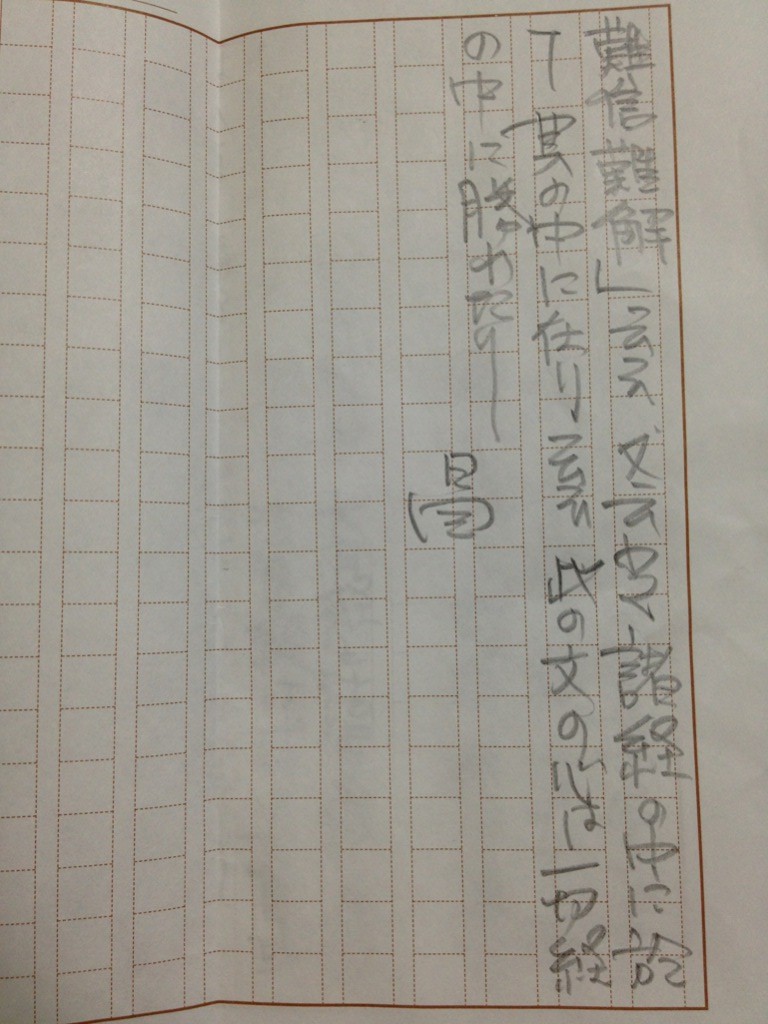 難信難解」云云 又云わく「諸経の中に於
て其の中に在り」云云 此の文の心は一切経
の中に勝れたり―